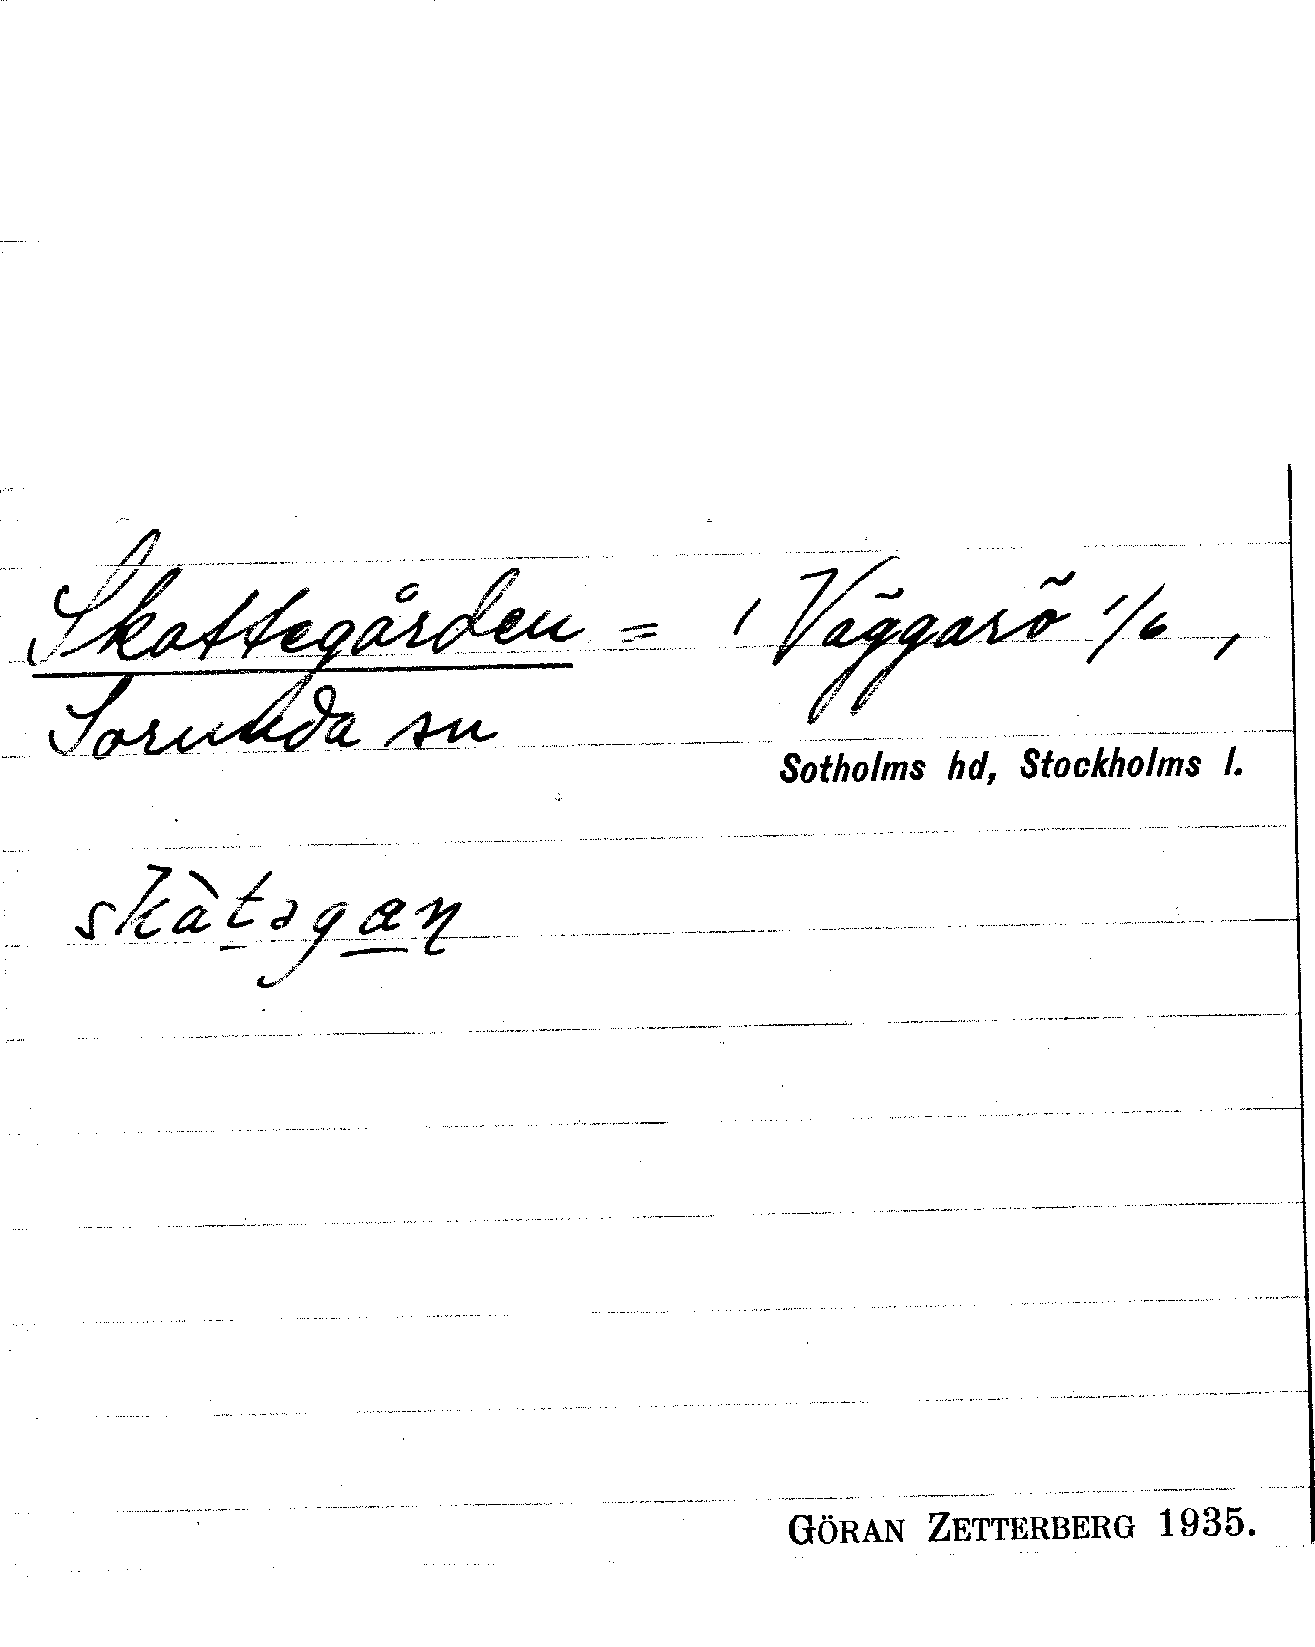 Skattegården = 1 Väggarö 1/6,
Sorunda sn
Sotholms hd, Stockholms l.
skàt̠əga̠ɳ
GÖRAN ZETTERBERG 1935.